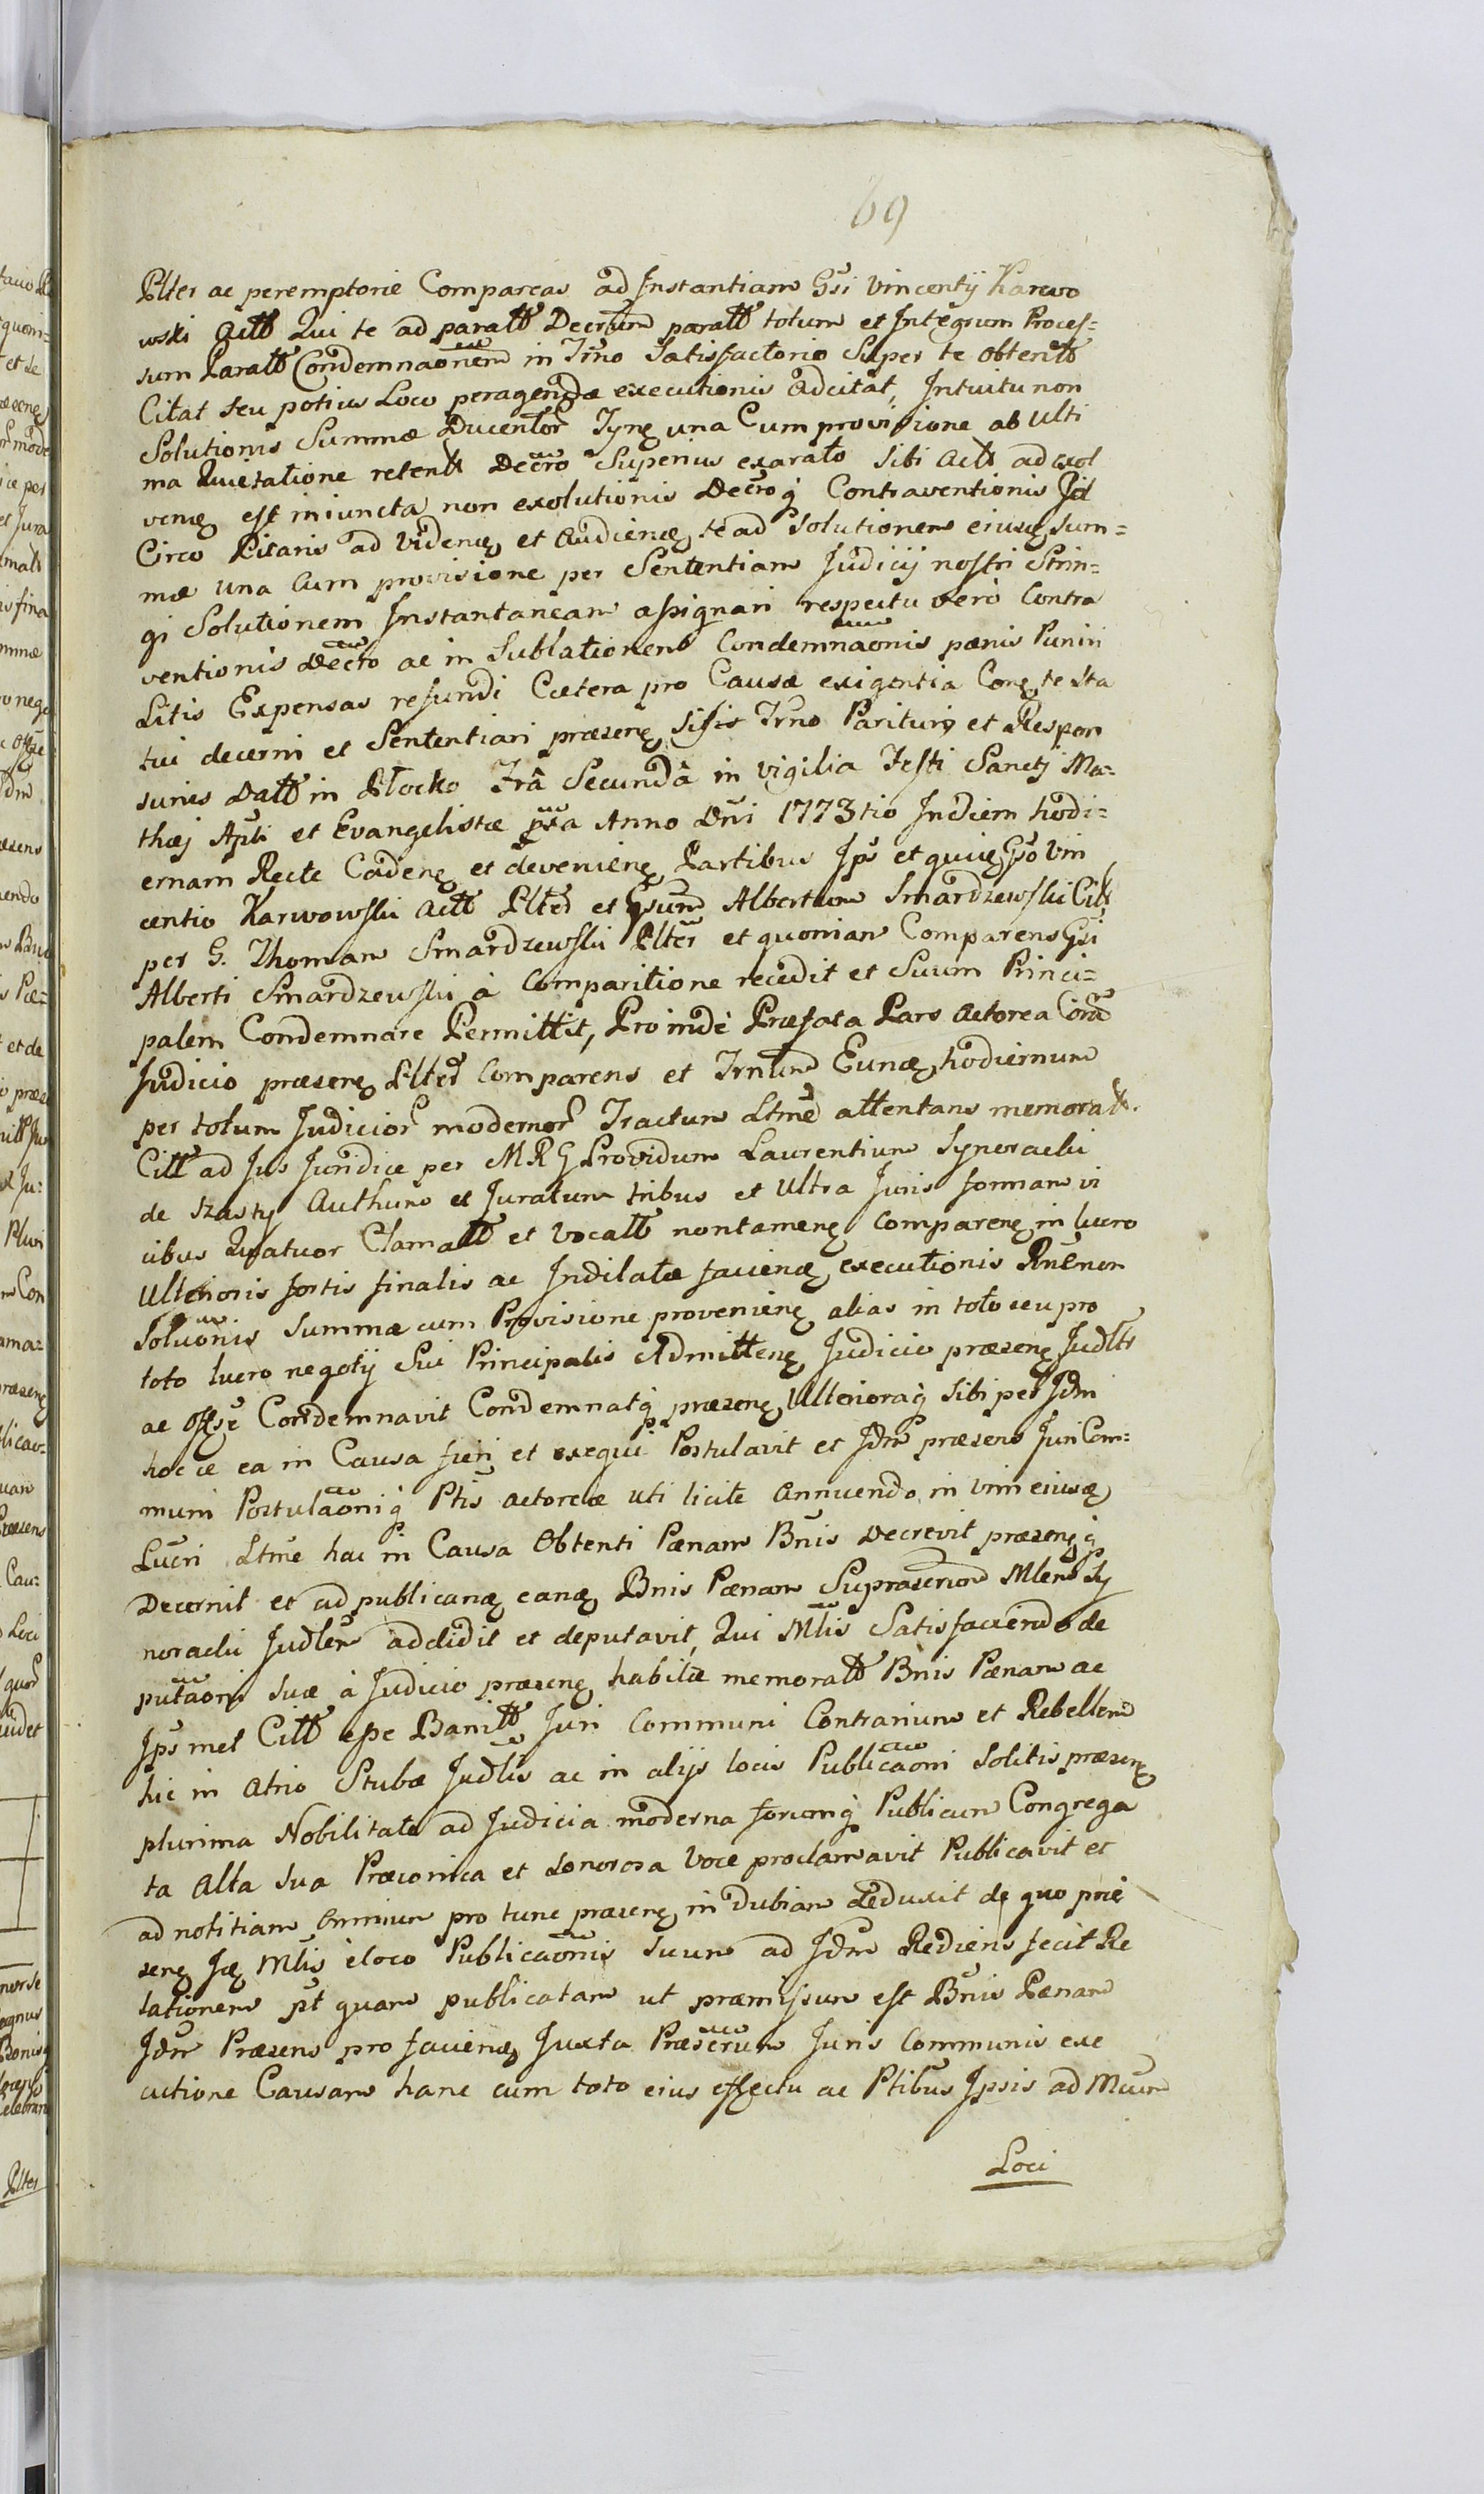 69
Plter ac peremptorie Compareas ad Instantiam Gsi Vincentij Karwo
wski Actt Qui te ad paratt Decrtum paratt totum et Integrum Proces=
sum Paratt Condemnaonem in Trno Satisfactorio Super te obtentt
Citat seu potius Loco peragendæ executionis adcitat, Intuitu non
Solutionis Summæ Ducentor Tyne una Cum provisione ab Ulti
ma Quietatione retentt Decro Superius exarato sibi Actt ad exol
vene est iniuncta, non exolutionis Decroq Contraventionis Jd
Circo Citaris ad Videne et Audiene te ad Solutionem eiusde Sum=
mæ una Cum provisione per Sententiam Judicij nostri Strin=
gi Solutionem Instantaneam assignari respectu vero Contra
ventionis Decro ac in Sublationem Condemnaonis pænis Puniri
Litis Expensas refundi Cætera pro Causæ exigentia Cone te Sta
tui decerni et Sententiari præsene, sisis Trno Pariturq et Respon
surus Datt in Plocko Fra Secundâ in Vigilia Festi Sancti Ma=
thæj Apli et Evangelistæ pxa Anno Dni 1773tio In diem hodi=
ernam Recte Cadene et deveniene Partibus Jps et quie Gso Vin
centio Karwowski Actt Plter et Gsum Albertum Smardzewski Citt
per G. Thomam Smardzewski Plter et quoniam Comparens Gsi
Alberti Smardzewski à Comparitione recedit et Suum Princi=
palem Condemnare Permittit, Proindè Præfata Pars Actorea Cora
Judicio præsene Plter Comparens et Trnum Eunde hodiernum
per totum Judicior modernor Tractum Ltme attentans memoratt.
Citt ad Jus Juridice per MRG Providum Laurentium Synoracki
de Szasty Authum et Juratum tribus et Ultra Juris formam vi
cibus Quatuor Clamatt et Vocatt non tamene Comparene in lucro
Ulterioris sortis finalis ac Indilatæ faciene executionis Rne non
Soluonis Summæ cum Provisione proveniene alias in toto seu pro
toto lucro negotij Sui Principalis Admittene Judicio præsene Judltr
ac Offse Condemnavit Condemnatq præsene Ulterioraq sibi per Jdm
hocce ea in Causa fieri et exequi Postulavit et Jdm præsens Juri Com=
muni Postulaoniq Ptis actoreæ uti licite annuendo in vim eiusde
Lucri Ltme hac in Causa Obtenti Pænam Bnis decrevit præseneq
Decernit et ad publicane eande Bnis Pænam Suprascriptum Mlem Sy
noracki Judlem addidit et deputavit, Qui Mlis Satisfaciendo de
putaoni suæ à Judicio præsene habitæ memoratt Bnis Pænam ac
Jps met Citt esse Banitt Juri Communi Contrarium et Rebellem
hic in atrio Stubæ Judlis ac in alijs locis Publicaoni Solitis præsene
plurima Nobilitate ad Judicia moderna forumq Publicum Congrega
ta Alta sua Præconica et Sonorosa Voce proclamavit Publicavit et
ad notitiam Omnium pro tunc præsene in dubiam deduxit de quo præ
sene Jde Mlis è loco Publicaonis Suum ad Jdm Rediens fecit Re
lationem pt quam publicatam ut præmissum est Bnis Pænam
Jdm Præsens pro faciene Juxta Præscrum Juris Communis exe
cutione Causam hanc cum toto eius effectu ac Ptibus Jpsis ad Muum
Loci